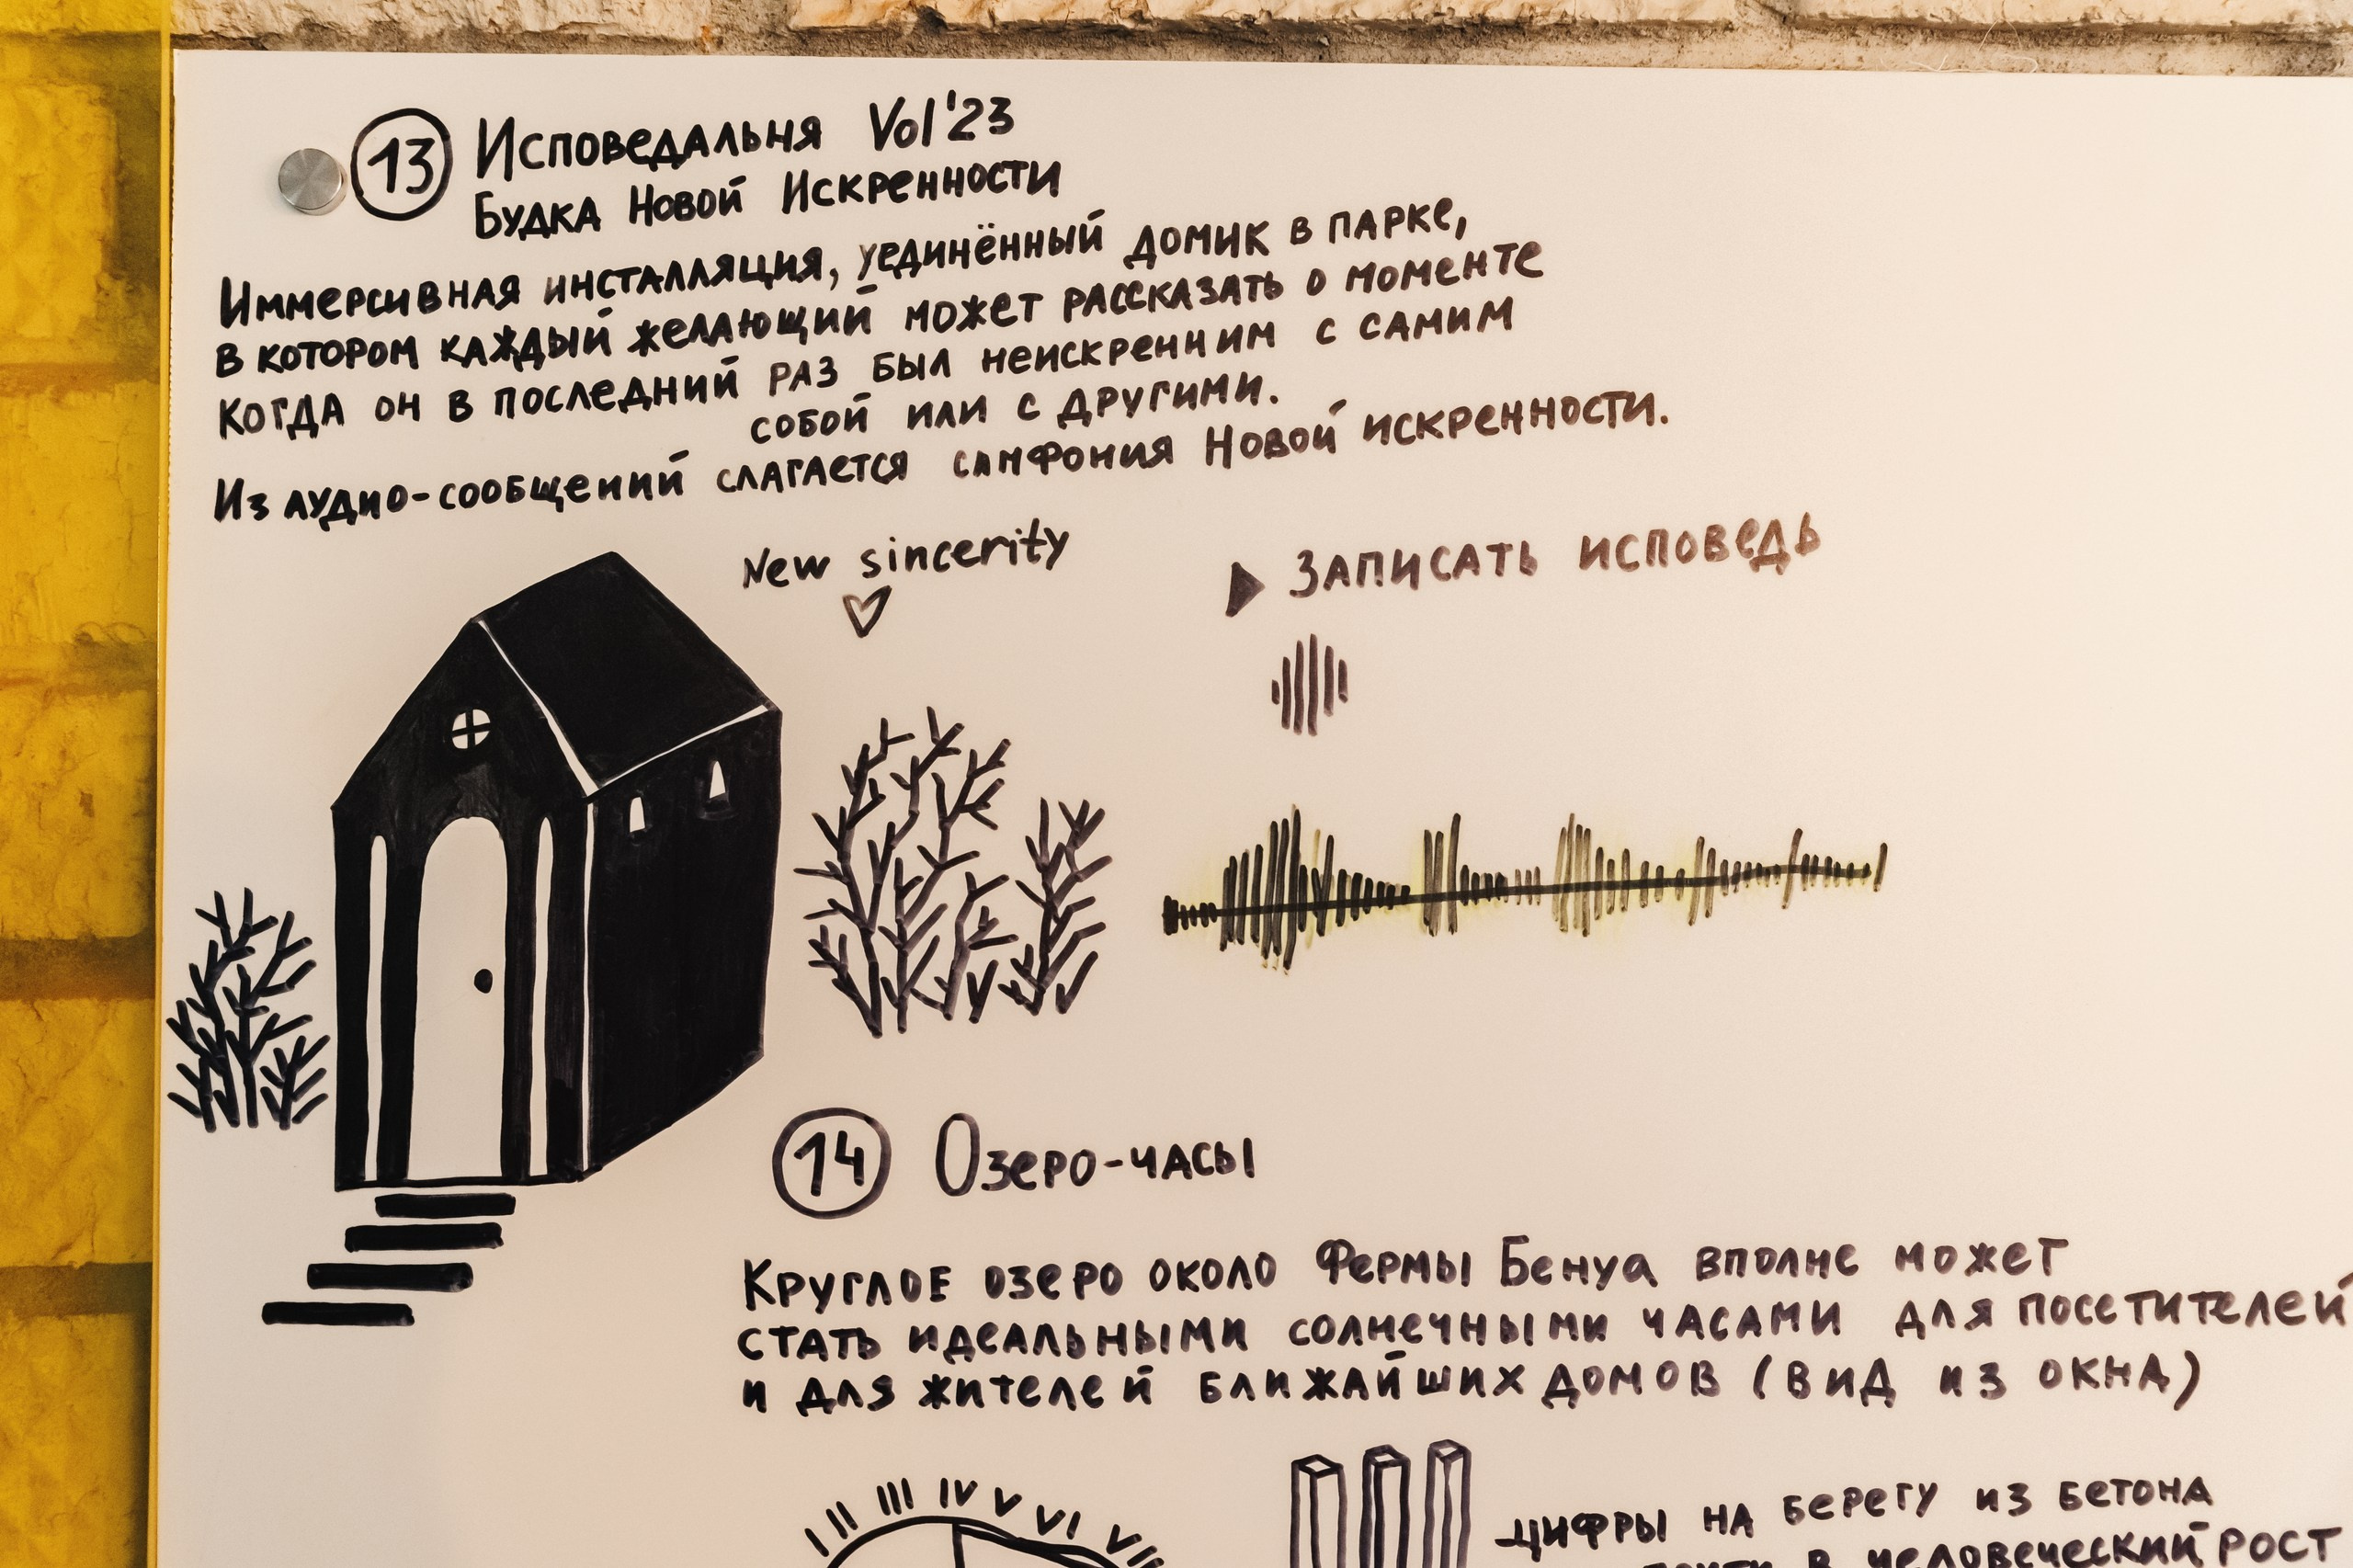 13 Исповедальня Vol'23
Будка Новой Искренности
Иммерсивная инсталляция, уединённый домик в парке,
в котором каждый желающий может рассказать о моменте
когда он в последний раз был неискренним с самим
собой или с другими.
Из аудио-сообщений слагается симфония Новой искренности.
New sincerity
Записать исповедь
14 Озеро-часы
Круглое озеро около Фермы Бенуа вполне может
стать идеальными солнечными часами для посетителей
и для жителей ближайших домов (вид из окна)
I II III IV V VI VII
-цифры на берегу из бетона
в человеческий рост